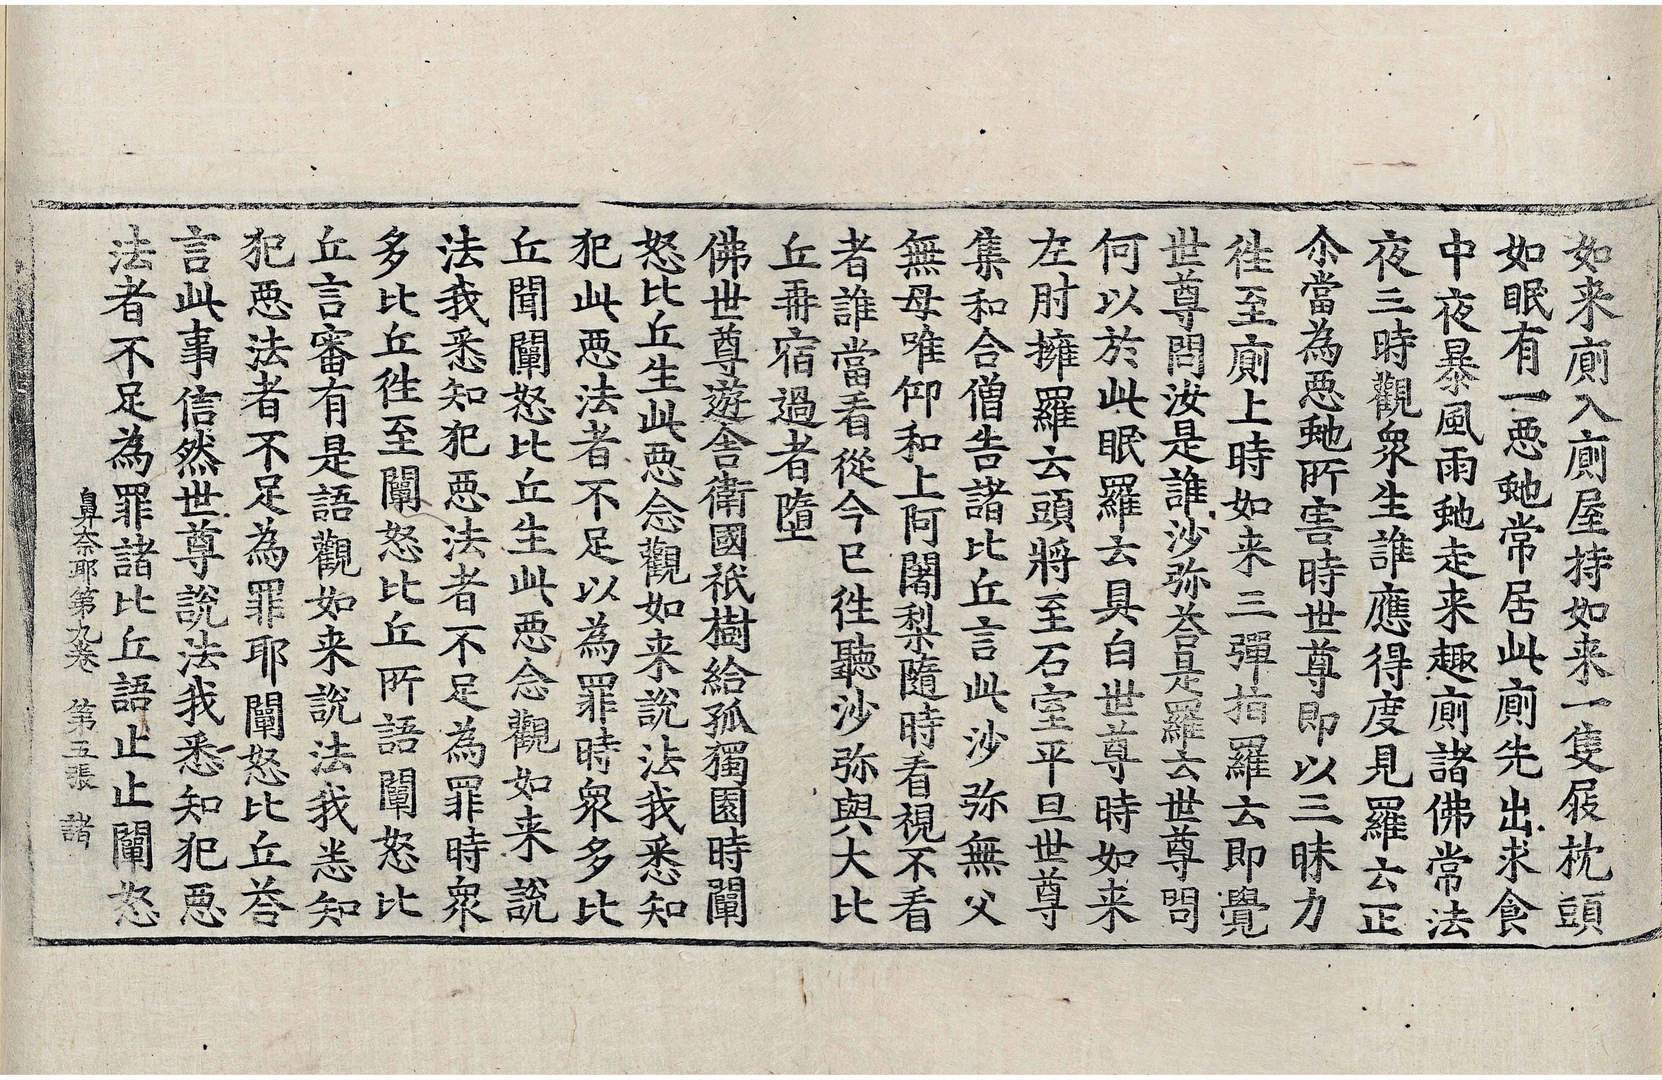 如来廁入廁屋持如来一隻屐枕頭
如眠有一惡虵常居此廁先出求食
中夜暴風雨虵走来趣廁諸佛常法
夜三時觀衆生誰應得度見羅云正
尒當為惡虵所害時世尊即以三昧力
徃至廁上時如来三彈指羅云即覺
世尊問汝是誰沙弥荅是羅云世尊問
何以於此眠羅云具白世尊時如来
左肘擁羅云頭將至石室平旦世尊
集和合僧告諸比丘言此沙弥無父
無母唯仰和上阿闍梨隨時看視不看
者誰當看從今已徃聽沙弥與大比
丘再宿過者墮
佛世尊遊舍衛國祇樹給孤獨園時闡
怒比丘生此惡念觀如来說法我悉知
犯此惡法者不足以為罪時衆多比
丘聞闡怒比丘生此惡念觀如来說
法我悉知犯惡法者不足為罪時衆
多比丘徃至闡怒比丘所語闡怒比
丘言審有是語觀如来說法我悉知
犯惡法者不足為罪耶闡怒比丘荅
言此事信然世尊說法我悉知犯惡
法者不足為罪諸比丘語止止闡怒
鼻奈耶第九卷 第五張 諸